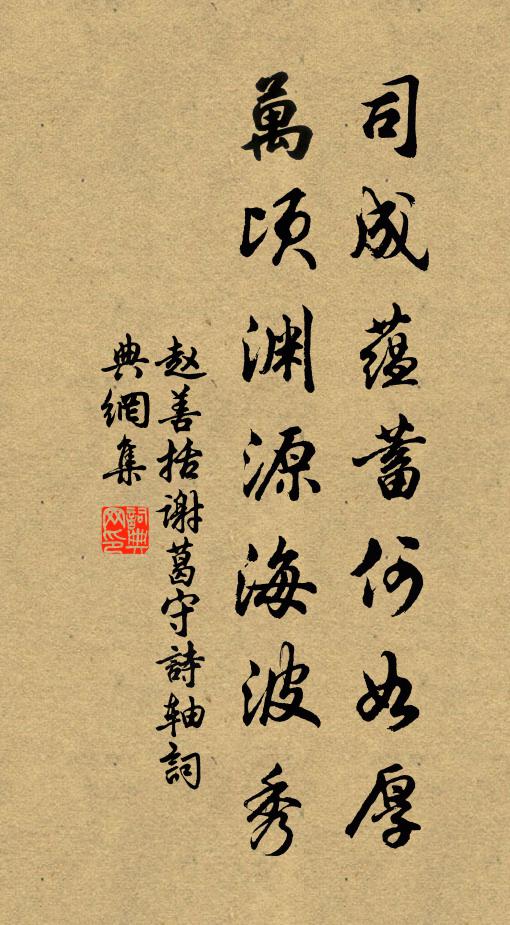 司成蕴蓄何如厚
萬顷渊源海波秀
赵善括谢葛守詩轴詞
典網集
詞典網印